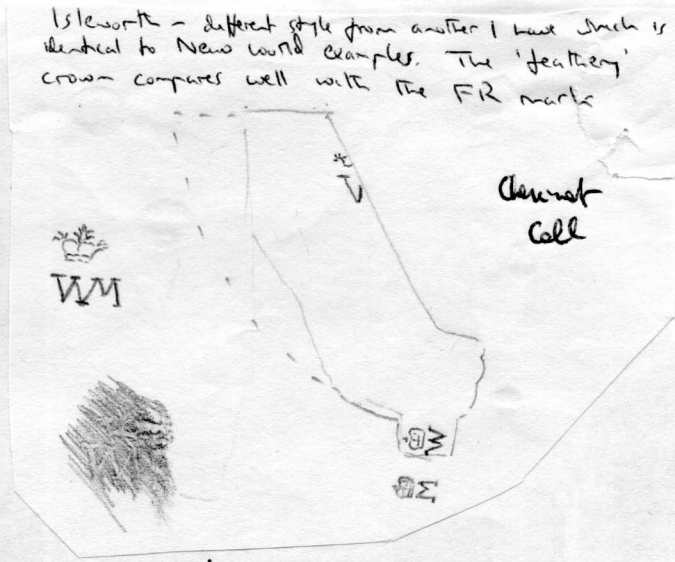 Isleworth – different style from another I have which is
identical to New World examples. The 'feathery'
crown compares well with the FR mark
V
Coll
WM
M
M